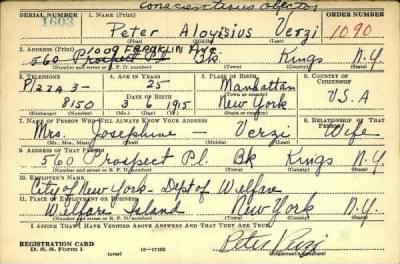 conscientious objector
SERIAL NUMBER 1. NAME (Print) ORDER NUMBER
1603 Peter Aloysius Verzi 1090
(First) (Middle) (Last)
1009 FRANKLIN Ave.
2. ADDRESS (Print)
560 Prospect Pl Bk Kings N.Y.
(Number and street or R. F. D. number) (Town) (County) (State)
3. TELEPHONE 4. AGE IN YEARS 5. PLACE OF BIRTH 6. COUNTRY OF CITIZENSHIP
Plaza 3- 25 Manhattan
DATE OF BIRTH
8150 3 6 1915 New York U.S.A
(Exchange) (Number) (Mo.) (Day) (Yr.) (State or country)
7. NAME OF PERSON WHO WILL ALWAYS KNOW YOUR ADDRESS 8. RELATIONSHIP OF THAT PERSON
Mrs. Josephine - Verzi Wife
(Mr., Mrs., Miss) (First) (Middle) (Last)
9. ADDRESS OF THAT PERSON
560 Prospect Pl. Bk Kings N.Y.
(Number and street or R. F. D. number) (Town) (County) (State)
10. EMPLOYER'S NAME
City of New York - Dept of Welfare
11. PLACE OF EMPLOYMENT OR BUSINESS
Welfare Island New York N.Y.
(Number and street or R. F. D. number) (Town) (County) (State)
I AFFIRM THAT I HAVE VERIFIED ABOVE ANSWERS AND THAT THEY ARE TRUE.
REGISTRATION CARD
D. S. S. Form 1 (over) Peter Verzi
(Registrant's signature)